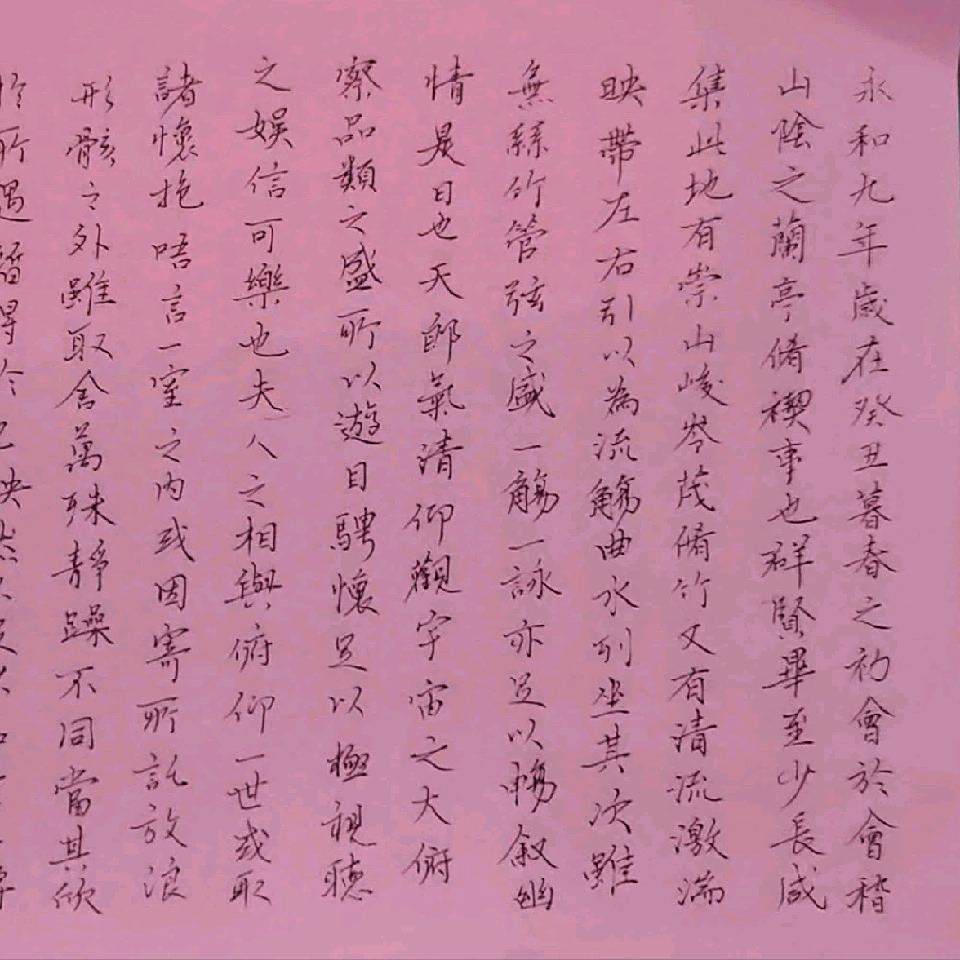 永和九年歲在癸丑暮春之初會於會稽
山陰之蘭亭脩禊事也群賢畢至少長咸
集此地有崇山峻岑茂脩竹又有清流激湍
映帶左右引以為流觴曲水列坐其次雖
無絲竹管弦之盛一觴一詠亦足以暢敘幽
情是日也天郎氣清仰觀宇宙之大俯
察品類之盛所以遊目騁懷足以極視聽
之娛信可樂也夫人之相與俯仰一世或取
諸懷抱唔言一室之內或因寄所託放浪
形骸之外雖取舍萬殊靜躁不同當其欣
於所遇暫得於己快然